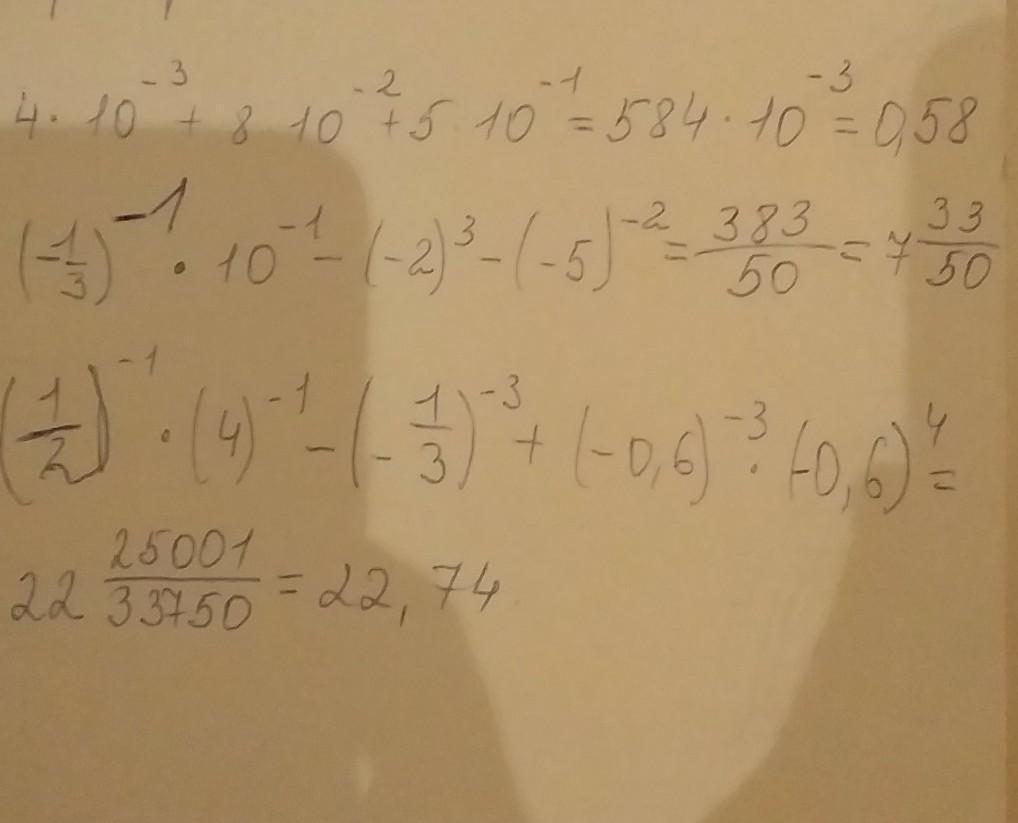 4 · 10⁻³ + 8 10⁻² + 5 · 10⁻¹ = 584 · 10⁻³ = 0,58
(-1/3)⁻¹ · 10⁻¹ - (-2)³ - (-5)⁻² = 383/50 = 7 33/50
(1/2)⁻¹ · (4)⁻¹ - (-1/3)⁻³ + (-0,6)⁻³ · (-0,6)⁴ =
22 25001/33750 = 22,74